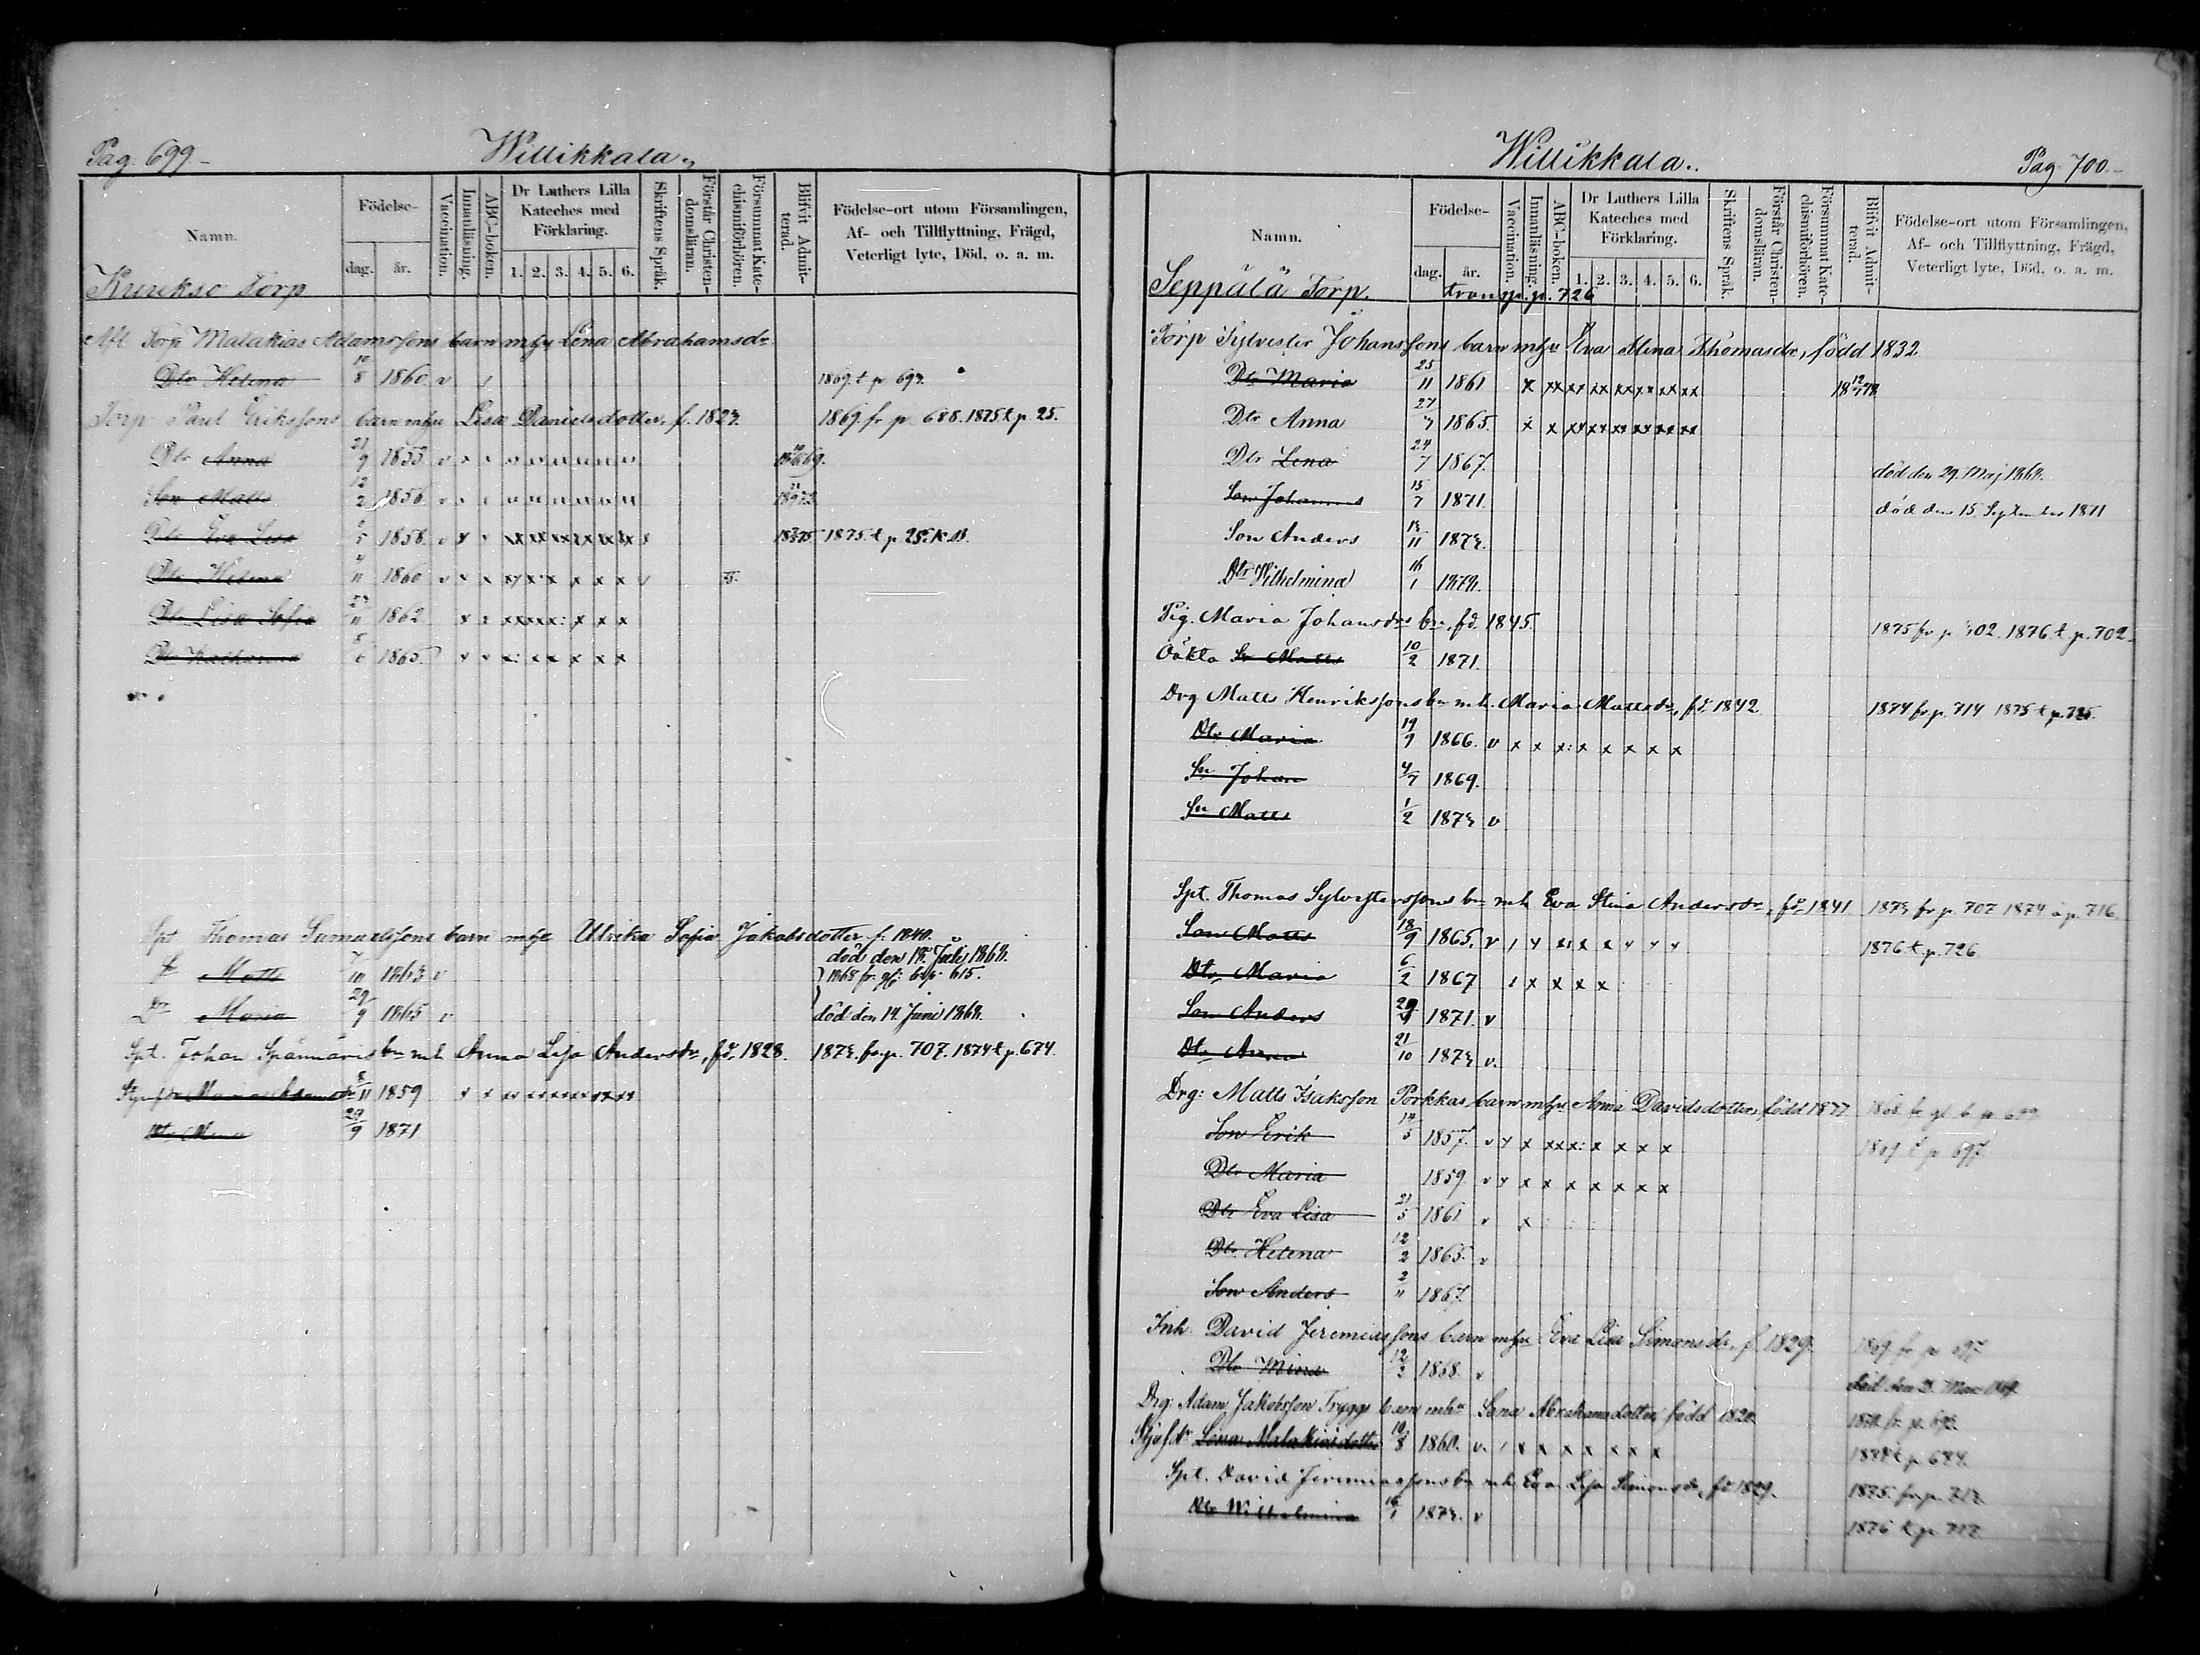 Pag. 699
Willikkala
Namn.
Födelse-
dag.
år.
Vaccination.
Innanläsning.
ABC-boken.
Dr Luthers Lilla Kateches med Förklaring.
1. 2. 3. 4. 5. 6.
Skriftens Språk.
Förstår Christen-domsläran.
Försummat Kate-chismiförhören.
Blifvit Admit-terad.
Födelse-ort utom Församlingen,
Af- och Tillflyttning, Frägd,
Veterligt lyte, Död, o. a. m.
Torp
Torp Malakias Adamssons barn mhu Lena Abrahamsdr
Dtr Helena 10/8 1860. v 1869. t. p. 697.
Torp Paul Erikssons barn mhu Lisa Danielsdotter, f. 1827. 1869 fr. p. 688. 1875 t. p. 25.
Dtr Anna 21/9 1853. v
Son Matts 12/2 1856. v
Dtr Eva Lisa 1858. v 1875. t. p. 25.
Dtr Helena 4/11 1860 v
Dtr Lisa Sofia 1862.
Dtr Katharina 8/6 1865.
Spt Thomas Samuelssons barn mhu Ulrika Sofia Jakobsdotter f. 1840.
Matts 7/10 1863 v 1868 fr. 615.
Dr Maria 29/9 1865 v död den 14 Juni 1868.
Spt. Johan Spännäris bn mh Anna Lisa Andersdr, fd 1828. 1873. fr. p. 707. 1874 t. p. 674.
Maria 1859
Dtr Mina 29/9 1871
Willikkala.
Pag. 700.
Namn.
Födelse-
dag.
år.
Vaccination.
Innanläsning.
ABC-boken.
Dr Luthers Lilla Kateches med Förklaring.
1. 2. 3. 4. 5. 6.
Skriftens Språk.
Förstår Christen-domsläran.
Försummat Kate-chismiförhören.
Blifvit Admit-terad.
Födelse-ort utom Församlingen,
Af- och Tillflyttning, Frägd,
Veterligt lyte, Död, o. a. m.
Seppälä Torp. transp. p. 726
Torp Sylvester Johanssons barn mhu Eva Stina Thomasdr, född 1832.
Dtr Maria 25/11 1861
Dtr Anna 1865.
Dtr Lena 24/7 1867. död den 29. Maj 1868.
Son Johannes 15/7 1871. död den 15 September 1871
Son Anders 1873.
Dtr Wilhelmina 16/1 1878.
Pig. Maria Johansdrs bn, fd. 1845. 1875 fr. p. 702. 1876 t. p. 702.
Oäkta Sn Matts 10/2 1871.
Drg Matts Henrikssons bn mh. Maria Mattsdr, fd 1842. 1874 fr. p. 714 1875 t. p. 725.
Dtr Maria 19/9 1866. v
Sn Johan 4/7 1869.
Sn Matts 1/2 1873 v
Spt. Thomas Sylvesterssons bn mh Eva Stina Andersdr, fd 1841. 1873 fr. p. 707 1874 p. 716.
Son Matts 18/9 1865. v 1876 t. p. 726
Dtr Maria 6/2 1867
Son Anders 1871. v
Dtr Anna 21/10 1873 v.
Drg: Matts Isaksson Porkkas barn mhu Anna Davidsdotter, född
Son Erik 1857. v 1869 t. p. 697.
Dtr Maria 1859 v
Dtr Eva Lisa 21/5 1861 v
Dtr Helena 12/2 1865. v
Son Anders 2/11 1867.
Inh David Jeremiassons barn mhu Eva Lisa Simonsdr, f. 1829. 1869 fr. p. 697
Dtr Mina 12/3 1868. v
Drg: Adam Jakobsson Tryggs barn mhu Lena Abrahamsdotter, född 1820.
Styfdr Lena Malakiasdotter 10/8 1860. v.
Spt. David Jeremiassons bn mh Eva Lisa Simonsdr, fd 1829. 1875. fr. p.
Dtr Wilhelmina 1873. v 1876 t. p.